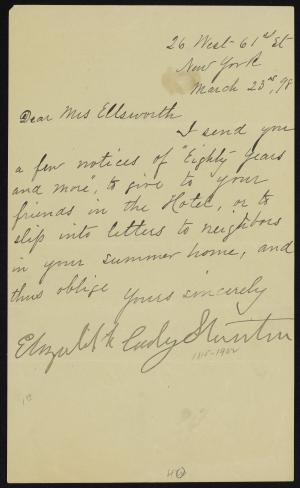 26 West 61st St
New York
March 23rd, 98
Dear Mrs Ellsworth
I send you
a few notices of "Eighty Years
and more", to give to your
friends in the Hotel, or to
slip into letters to neighbors
in your summer home, and
thus oblige Yours sincerely
Elizabeth Cady Stanton
1815-1902